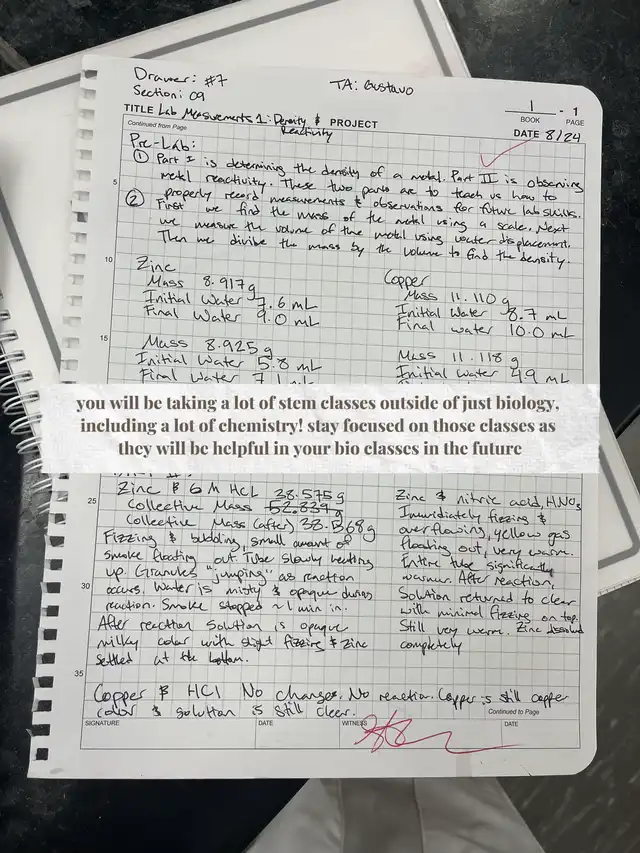 Drawer: #7
TA: Gustavo
Section: 09
1 - 1
BOOK PAGE
TITLE Lab Measurements 1: Density & Reactivity PROJECT
Continued from Page
DATE 8/24
Pre-Lab:
① Part I is determining the density of a metal. Part II is observing
metal reactivity. These two parts are to teach us how to
5
properly record measurements & observations for future lab skills.
② First we find the mass of the metal using a scale. Next
we measure the volume of the metal using water displacement.
Then we divide the mass by the volume to find the density.
10
Zinc
Mass 8.917g
Initial Water 7.6 mL
Final Water 9.0 mL
Copper
Mass 11.110 g
Initial Water 8.7 mL
Final water 10.0 mL
15
Mass 8.925g
Initial Water 5.8 mL
Final Water 7.1 mL
Mass 11.118 g
Initial Water 4.9 mL
you will be taking a lot of stem classes outside of just biology,
including a lot of chemistry! stay focused on those classes as
they will be helpful in your bio classes in the future
25
Zinc & 6 M HCl 38.575g
Collective Mass
Collective Mass (after) 38.368g
Fizzing & bubbling, small amount of
smoke floating out. Tube slowly heating
up. Granules "jumping" as reaction
30
occurs. Water is misty & opaque during
reaction. Smoke stopped ~1 min in.
After reaction solution is opaque
milky color with slight fizzing & zinc
settled at the bottom.
Zinc & nitric acid, HNO₃
Immidiately fizzing &
overflowing, yellow gas
floating out, very warm.
Entire tube significantly
warmer. After reaction:
Solution returned to clear
with minimal fizzing on top.
Still very warm. Zinc dissolved
completely
35
Copper & HCl No changes. No reaction. Copper is still copper
color & solution is still clear.
Continued to Page
SIGNATURE
DATE
WITNESS
DATE